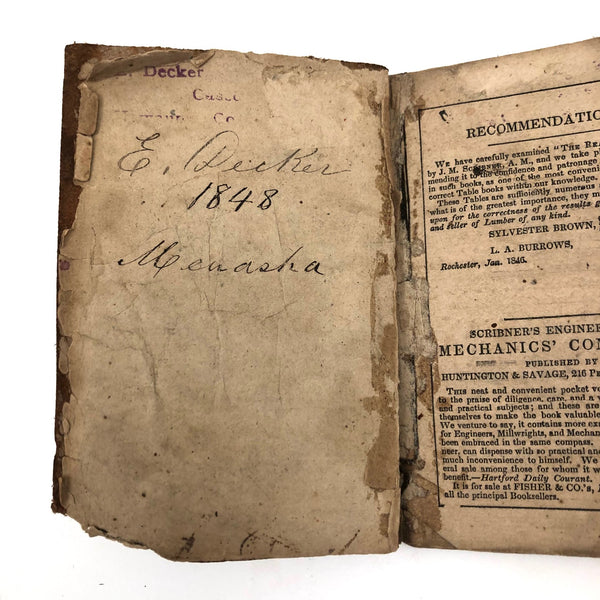 Decker
Casc
Co
E. Decker
1848
Menasha
RECOMMENDATIO
WE have carefully examined "THE REA
by J. M. SCRIBNER, A. M., and we take pl
mending it to the confidence and patronage
in such books, as one of the most conveni
correct Table books within our knowledge.
These Tables are sufficiently numerous
what is of the greatest importance, they m
upon for the correctness of the results g
and seller of Lumber of any kind.
SYLVESTER BROWN,
L. A. BURROWS,
Rochester, Jan. 1846.
SCRIBNER'S ENGINEE
MECHANICS' COM
PUBLISHED BY
HUNTINGTON & SAVAGE, 216 PE
THIS neat and convenient pocket v
to the praise of diligence, care, and a v
and practical subjects; and these are
themselves to make the book valuable
We venture to say, it contains more ex
for Engineers, Millwrights, and Mechan
been embraced in the same compass.
neer, can dispense with so practical and
much inconvenience to himself. We
eral sale among those for whom it w
benefit.—Hartford Daily Courant.
It is for sale at FISHER & CO.'s,
all the principal Booksellers.